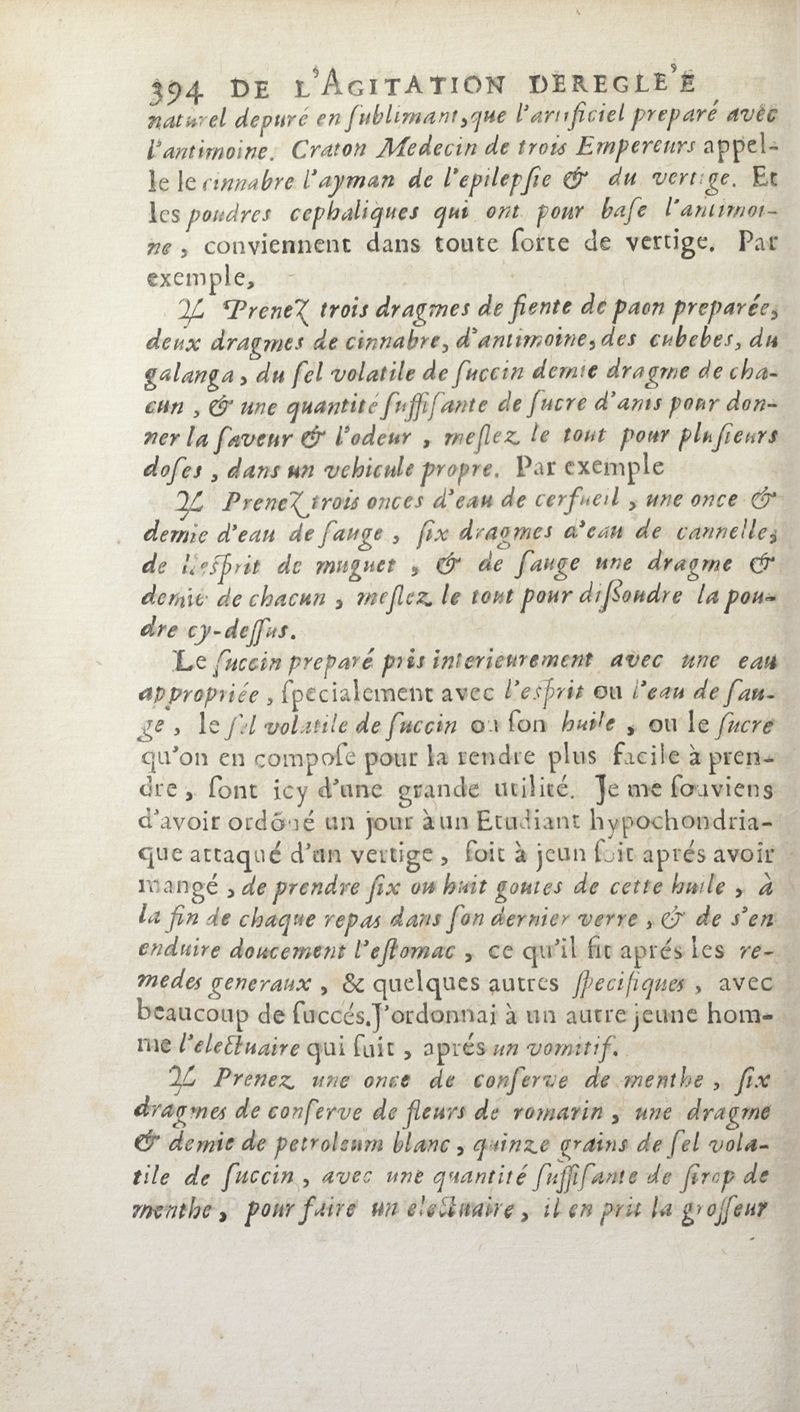 394 DE L'AGITATION DEREGLE'E
naturel depuré en ſublimant, que l'artificiel preparé avec
l'antimoine. Craton Medecin de trois Empereurs appel-
le le cinnabre l'ayman de l'epilepſie & du vertige. Et
les poudres cephaliques qui ont pour baſe l'antimoi-
ne, conviennent dans toute ſorte de vertige. Par
exemple,
♃ Prenez trois dragmes de fiente de paon preparée,
deux dragmes de cinnabre, d'antimoine, des cubebes, du
galanga, du ſel volatile de ſuccin demie dragme de cha-
cun, & une quantité ſuffiſante de ſucre d'anis pour don-
ner la ſaveur & l'odeur, meſlez le tout pour pluſieurs
doſes, dans un vehicule propre. Par exemple
♃ Prenez trois onces d'eau de cerfueil, une once &
demie d'eau de ſauge, ſix dragmes d'eau de cannelle,
de l'eſprit de muguet, & de ſauge une dragme &
demie de chacun, meſlez le tout pour diſſoudre la pou-
dre cy-deſſus.
Le ſuccin preparé pris interieurement avec une eau
appropriée, ſpecialement avec l'eſprit ou l'eau de ſau-
ge, le ſel volatile de ſuccin ou ſon huile, ou le ſucre
qu'on en compoſe pour la rendre plus facile à pren-
dre, ſont icy d'une grande utilité. Je me ſouviens
d'avoir ordõné un jour à un Etudiant hypochondria-
que attaqué d'un vertige, ſoit à jeun ſoit aprés avoir
mangé, de prendre ſix ou huit goutes de cette huile, à
la fin de chaque repas dans ſon dernier verre, & de s'en
enduire doucement l'eſtomac, ce qu'il fit aprés les re-
medes generaux, & quelques autres ſpecifiques, avec
beaucoup de ſuccés. J'ordonnai à un autre jeune hom-
me l'electuaire qui ſuit, aprés un vomitif.
♃ Prenez une once de conſerve de menthe, ſix
dragmes de conſerve de fleurs de romarin, une dragme
& demie de petroleum blanc, quinze grains de ſel vola-
tile de ſuccin, avec une quantité ſuffiſante de ſirop de
menthe, pour faire un electuaire, il en prit la groſſeur